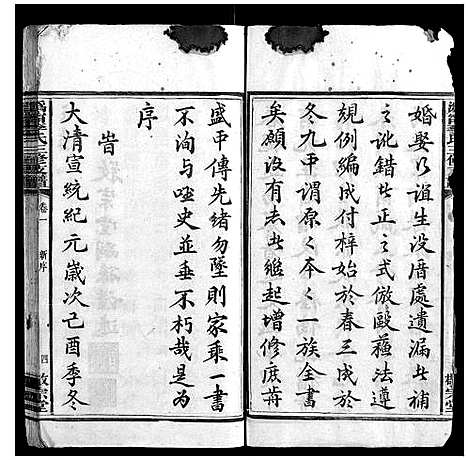 婚娶乃誼生沒厝處遺漏者補
之訛錯者正之式倣歐蘇法遵
規例編成付梓始於春三成於
冬九甲謂原原本本一族全書
矣願沒有志者繼起增修庶肯
盛甲傳先緒勿墜則家乘一書
不洵与唑史並垂不朽哉是为
序
旹
大清宣統紀元歲次己酉季冬
三修支譜
卷一
新序
四
敦宗堂